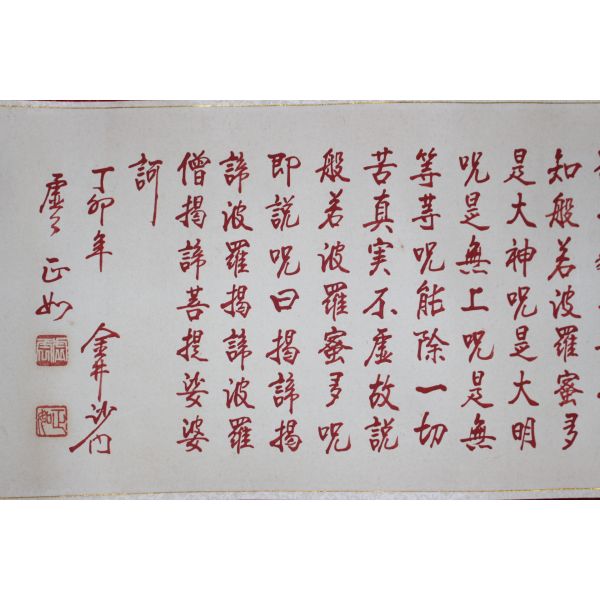 知般若波羅蜜多
是大神呪是大明
呪是無上呪是無
等等呪能除一切
苦真実不虚故説
般若波羅蜜多呪
即説呪曰揭諦揭
諦波羅揭諦波羅
僧揭諦菩提娑婆
訶
丁卯年 金井沙門
虚云 正如
正如